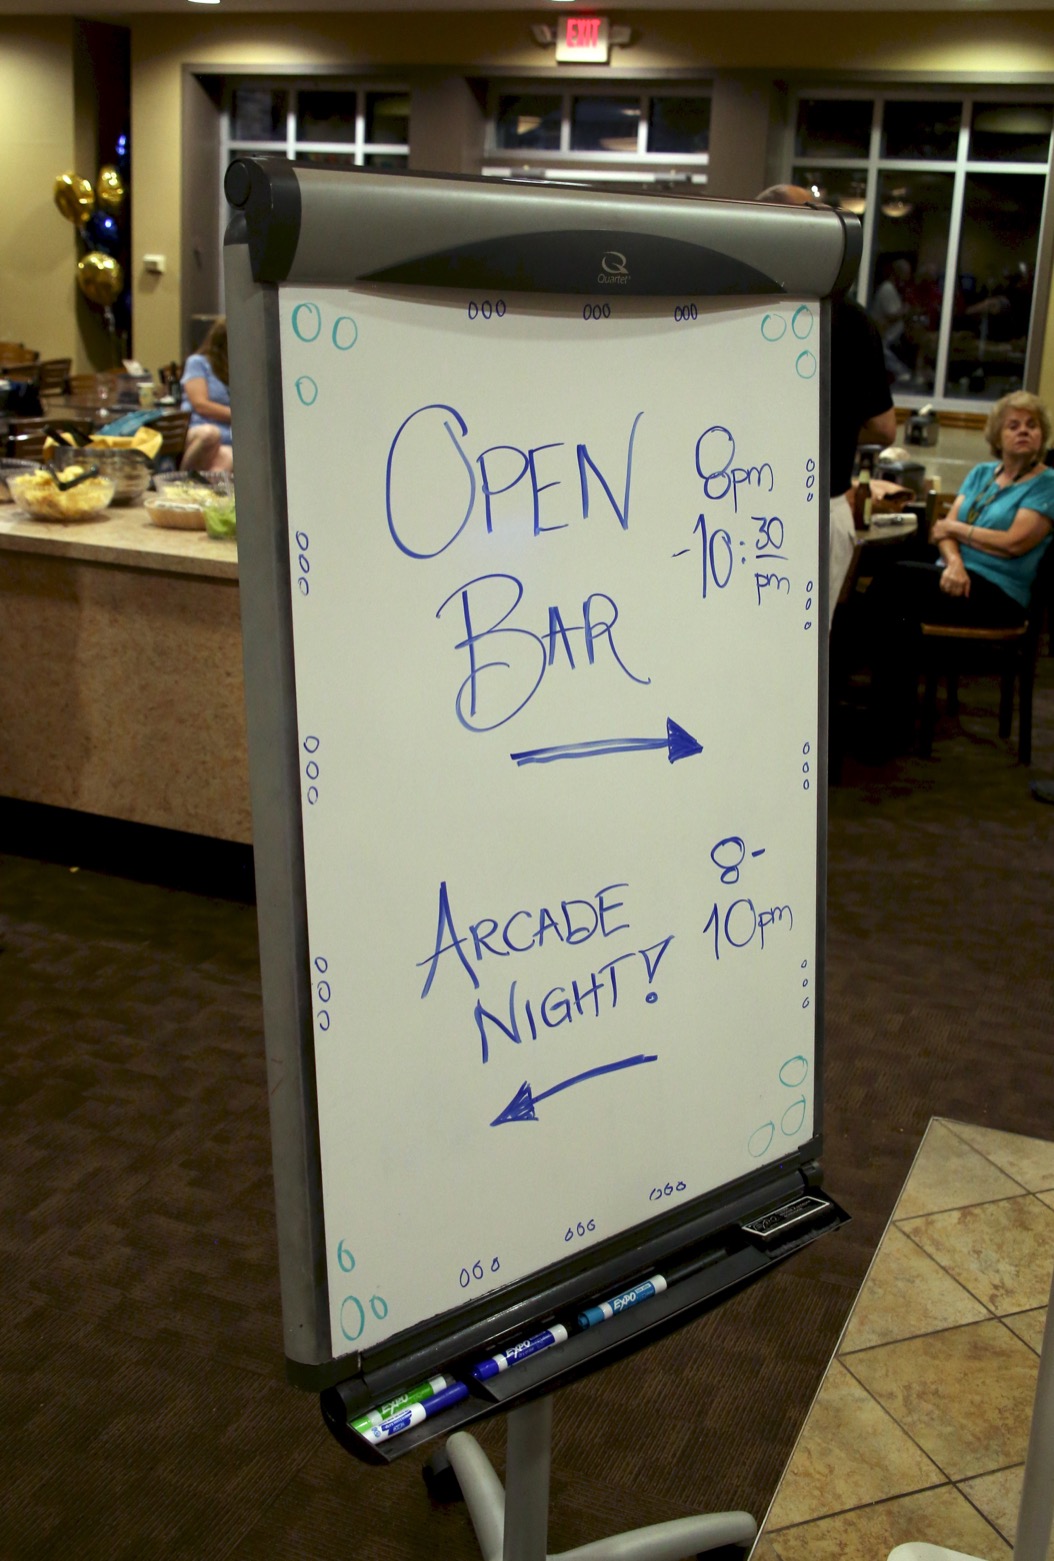 EXIT
Quartet
OPEN 8pm
-10:30 pm
BAR
ARCADE 8-
10pm
NIGHT!
EXPO
EXPO
EXPO